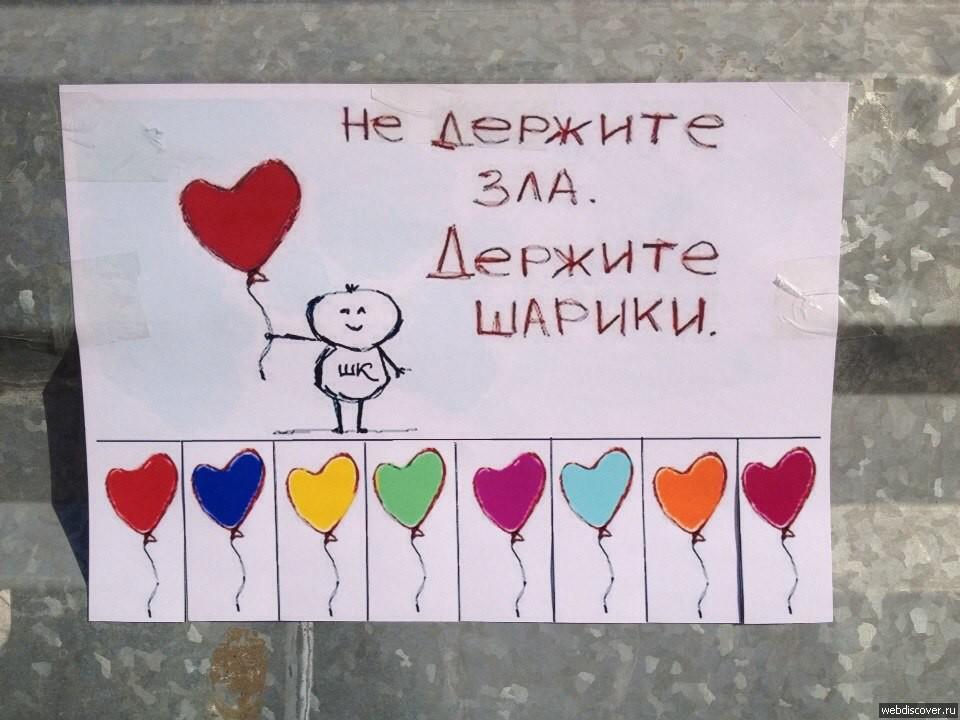 Не держите
зла.
Держите
шарики.
ШК
webdiscover.ru